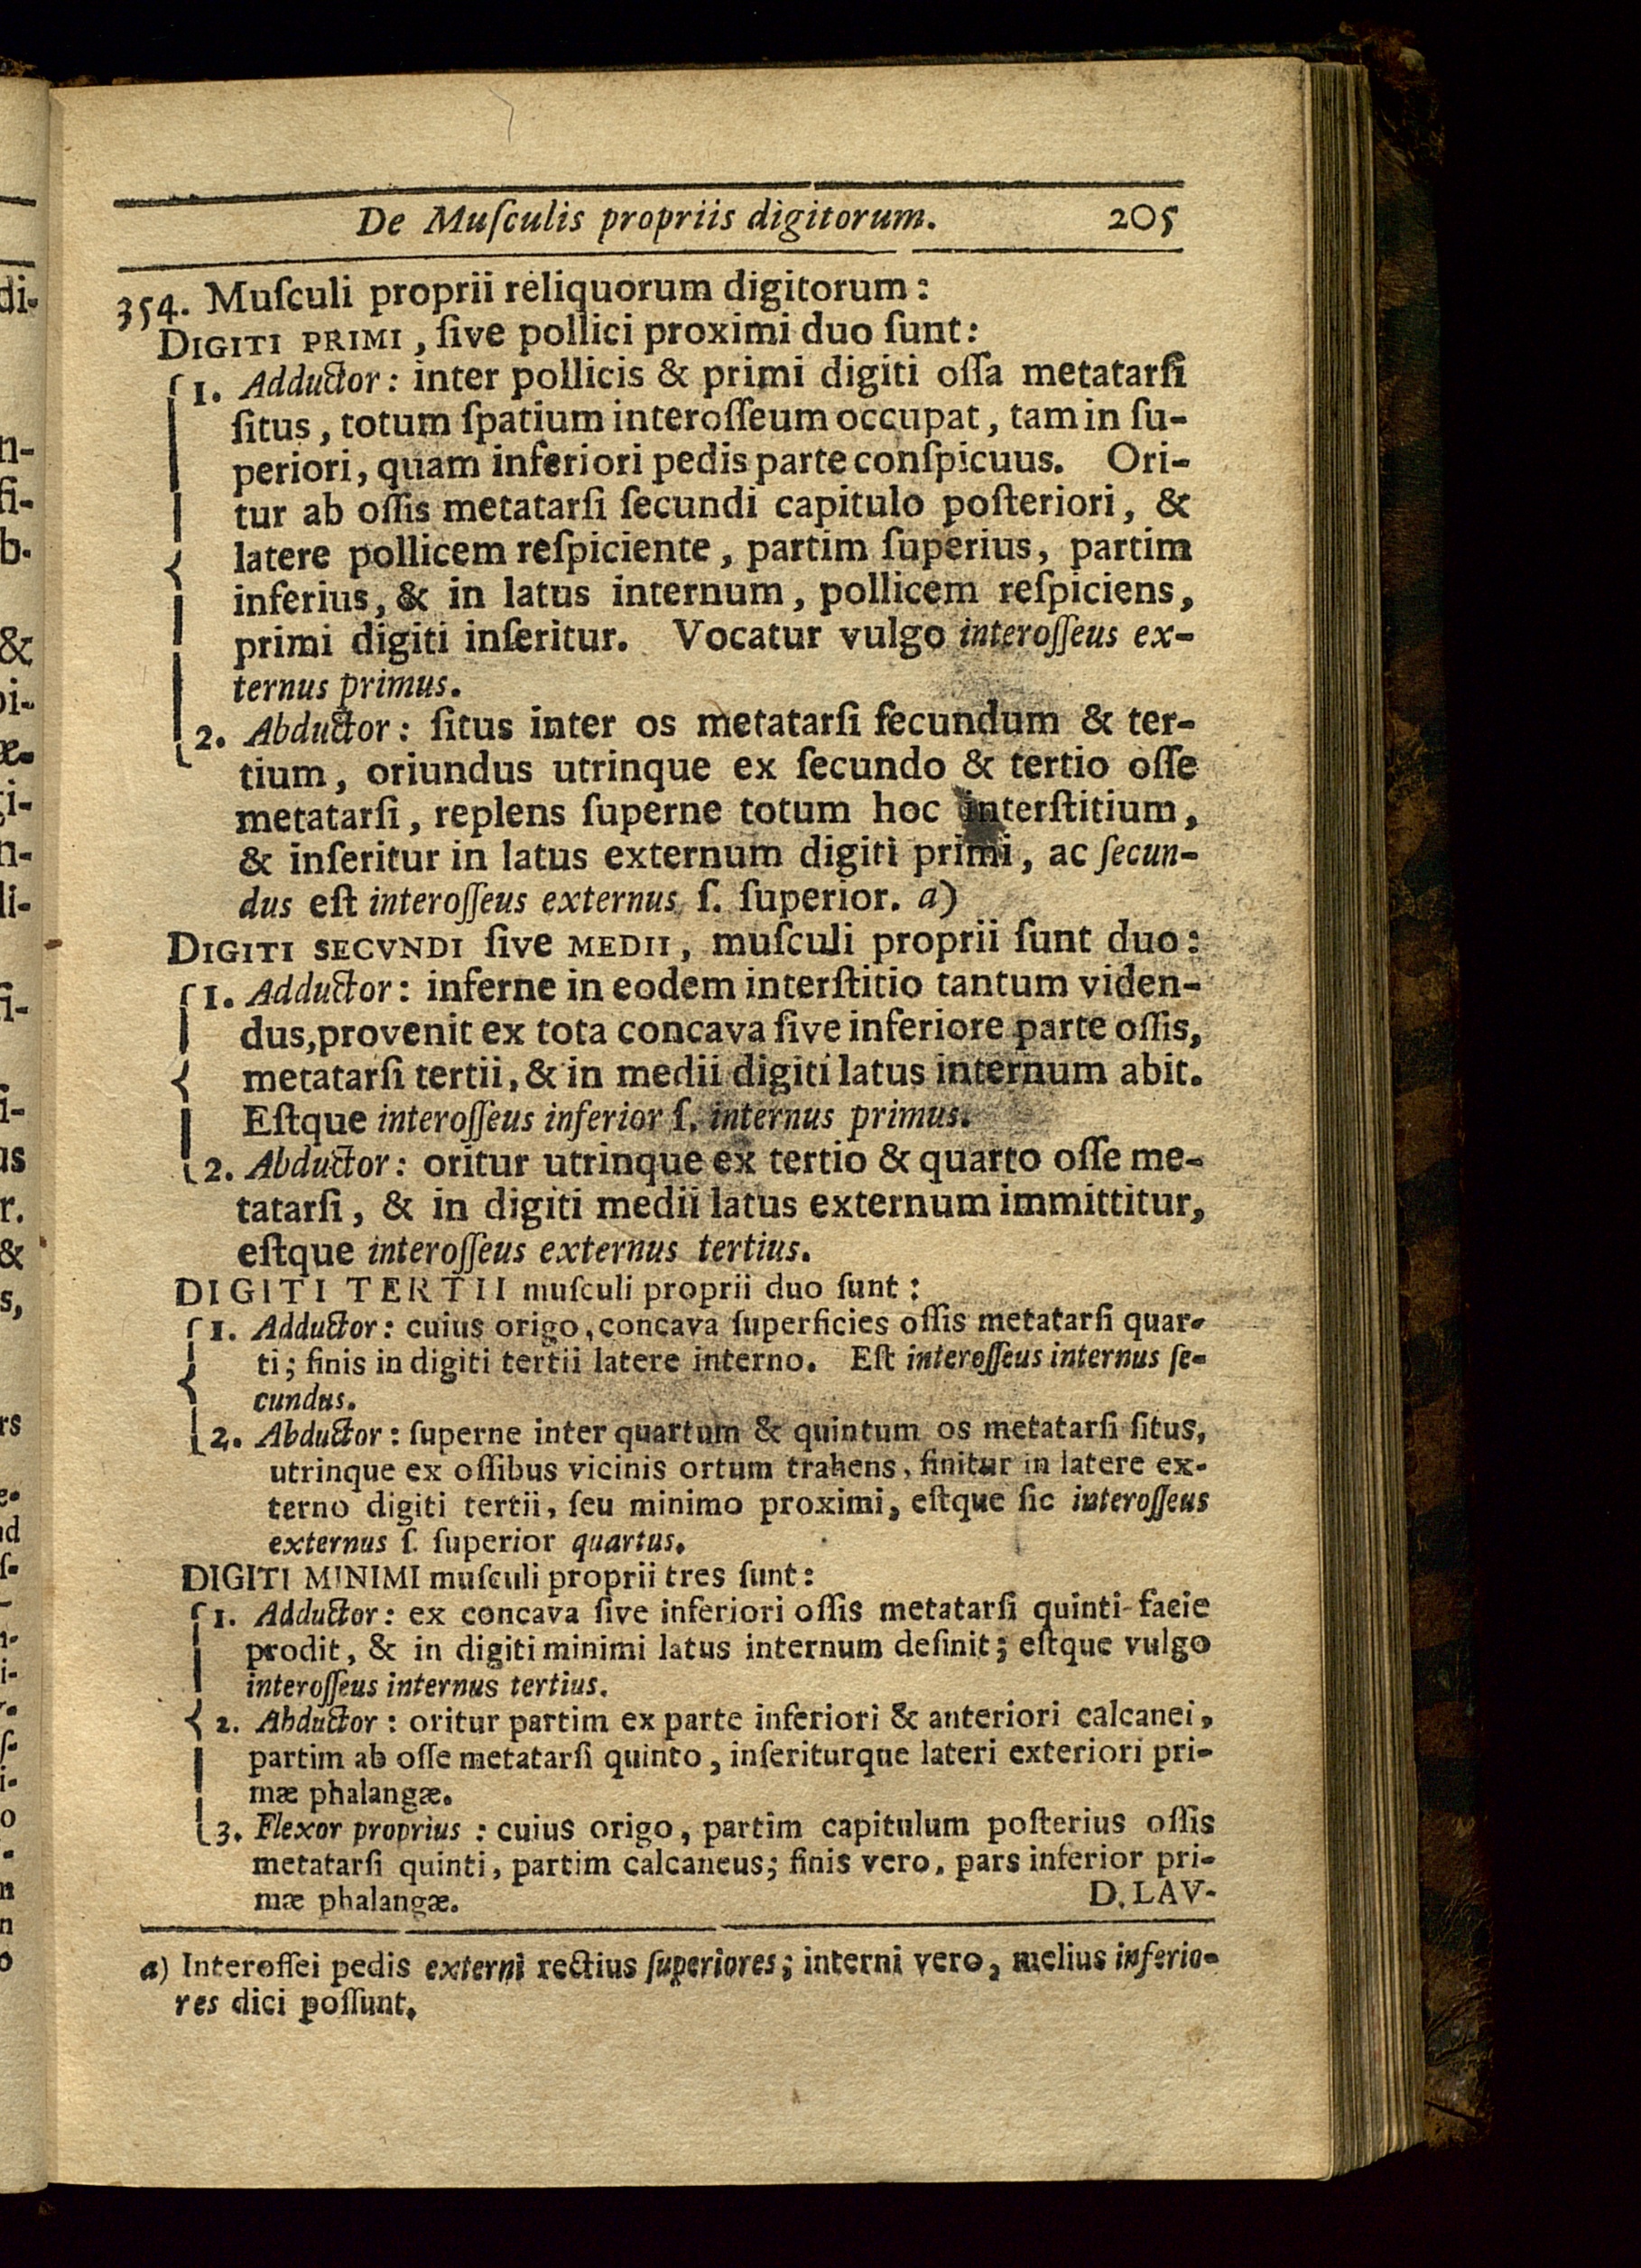 De Muſculis propriis digitorum. 205
354. Muſculi proprii reliquorum digitorum:
DIGITI PRIMI, ſive pollici proximi duo ſunt:
1. Adductor: inter pollicis & primi digiti oſſa metatarſi
ſitus, totum ſpatium interoſſeum occupat, tam in ſu-
periori, quam inferiori pedis parte conſpicuus. Ori-
tur ab oſſis metatarſi ſecundi capitulo poſteriori, &
latere pollicem reſpiciente, partim ſuperius, partim
inferius, & in latus internum, pollicem reſpiciens,
primi digiti inſeritur. Vocatur vulgo interoſſeus ex-
ternus primus.
2. Abductor: ſitus inter os metatarſi ſecundum & ter-
tium, oriundus utrinque ex ſecundo & tertio oſſe
metatarſi, replens ſuperne totum hoc interſtitium,
& inſeritur in latus externum digiti primi, ac ſecun-
dus eſt interoſſeus externus ſ. ſuperior. a)
DIGITI SECVNDI ſive MEDII, muſculi proprii ſunt duo:
1. Adductor: inferne in eodem interſtitio tantum viden-
dus, provenit ex tota concava ſive inferiore parte oſſis,
metatarſi tertii, & in medii digiti latus internum abit.
Eſtque interoſſeus inferior ſ. internus primus.
2. Abductor: oritur utrinque ex tertio & quarto oſſe me-
tatarſi, & in digiti medii latus externum immittitur,
eſtque interoſſeus externus tertius.
DIGITI TERTII muſculi proprii duo ſunt:
1. Adductor: cuius origo, concava ſuperficies oſſis metatarſi quar-
ti; finis in digiti tertii latere interno. Eſt interoſſeus internus ſe-
cundus.
2. Abductor: ſuperne inter quartum & quintum os metatarſi ſitus,
utrinque ex oſſibus vicinis ortum trahens, finitur in latere ex-
terno digiti tertii, ſeu minimo proximi, eſtque ſic interoſſeus
externus ſ. ſuperior quartus.
DIGITI MINIMI muſculi proprii tres ſunt:
1. Adductor: ex concava ſive inferiori oſſis metatarſi quinti facie
prodit, & in digiti minimi latus internum deſinit; eſtque vulgo
interoſſeus internus tertius.
2. Abductor: oritur partim ex parte inferiori & anteriori calcanei,
partim ab oſſe metatarſi quinto, inſeriturque lateri exteriori pri-
mæ phalangæ.
3. Flexor proprius: cuius origo, partim capitulum poſterius oſſis
metatarſi quinti, partim calcaneus; finis vero, pars inferior pri-
mæ phalangæ. D. LAV-
a) Interoſſei pedis externi rectius ſuperiores; interni vero, melius inferio-
res dici poſſunt.